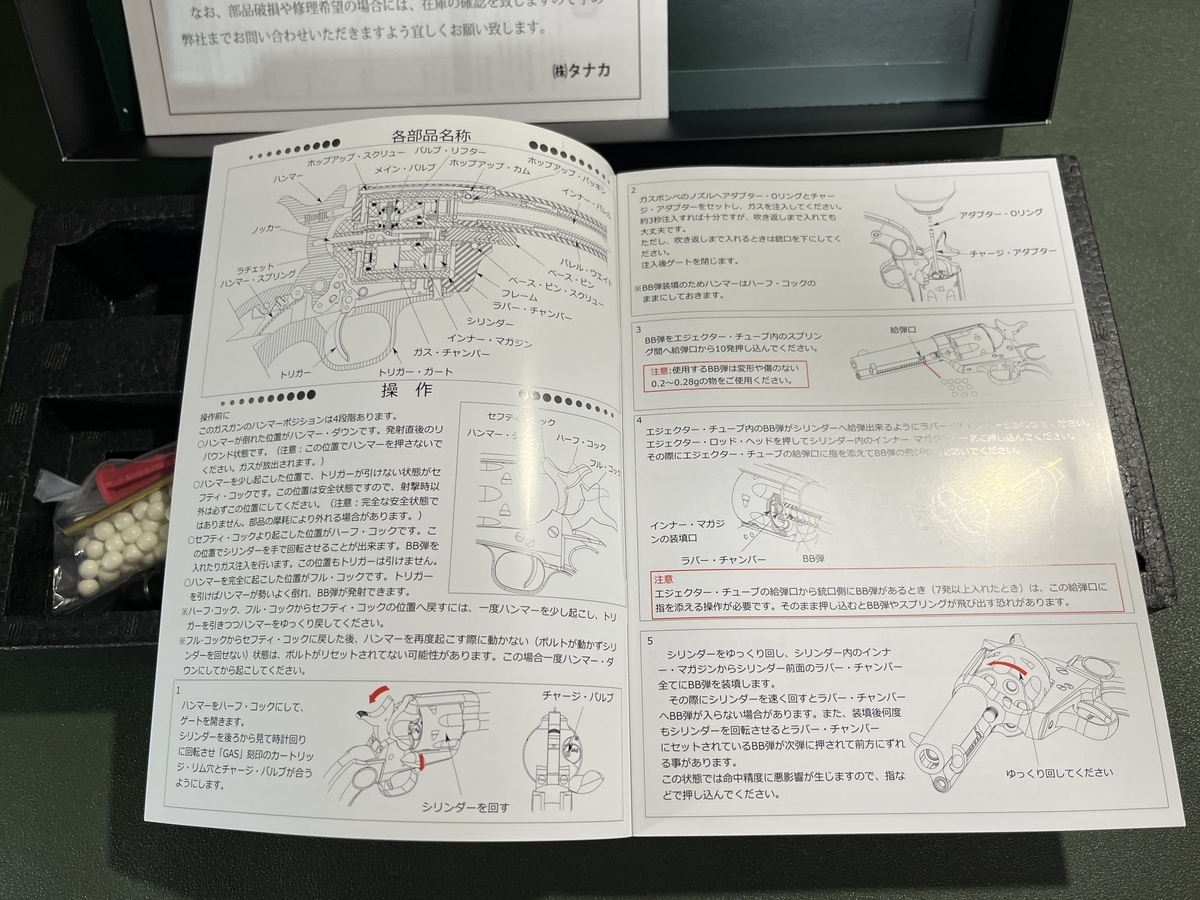 なお、部品破損や修理希望の場合には、在庫の確認を致しますので予め
弊社までお問い合わせいただきますよう宜しくお願い致します。
㈱タナカ
各部品名称
ホップアップ・スクリュー
バルブ・リフター
メイン・バルブ
ホップアップ・カム
ホップアップ・パッキン
ハンマー
インナー・バレル
ノッカー
バレル・ウエイト
ラチェット
ベース・ピン
ハンマー・スプリング
ベース・ピン・スクリュー
フレーム
ラバー・チャンバー
シリンダー
インナー・マガジン
ガス・チャンバー
トリガー
トリガー・ガート
操 作
操作前に
このガスガンのハンマーポジションは4段階あります。
○ハンマーが倒れた位置がハンマー・ダウンです。発射直後のリ
バウンド状態です。(注意：この位置でハンマーを押さないで
ください。ガスが放出されます。)
○ハンマーを少し起こした位置で、トリガーが引けない状態がセ
フティ・コックです。この位置は安全状態ですので、射撃時以
外は必ずこの位置にしてください。(注意：完全な安全状態で
はありません。部品の摩耗により外れる場合があります。)
○セフティ・コックより起こした位置がハーフ・コックです。こ
の位置でシリンダーを手で回転させることが出来ます。BB弾を
入れたりガス注入を行います。この位置もトリガーは引けません。
○ハンマーを完全に起こした位置がフル・コックです。トリガー
を引けばハンマーが勢いよく倒れ、BB弾が発射できます。
セフティ・コック
ハンマー・ダ
ハーフ・コック
フル・コック
※ハーフ・コック、フル・コックからセフティ・コックの位置へ戻すには、一度ハンマーを少し起こし、トリ
ガーを引きつつハンマーをゆっくり戻してください。
※フル・コックからセフティ・コックに戻した後、ハンマーを再度起こす際に動かない（ボルトが動かずシリ
ンダーを回せない）状態は、ボルトがリセットされてない可能性があります。この場合一度ハンマー・ダ
ウンにしてから起こしてください。
1
ハンマーをハーフ・コックにして、
ゲートを開きます。
シリンダーを後ろから見て時計回り
に回転させ「GAS」刻印のカートリッ
ジ・リム穴とチャージ・バルブが合う
ようにします。
チャージ・バルブ
シリンダーを回す
2
ガスボンベのノズルへアダプター・Oリングとチャー
ジ・アダプターをセットし、ガスを注入してください。
約3秒注入すれば十分ですが、吹き返しまで入れても
大丈夫です。
ただし、吹き返しまで入れるときは銃口を下にしてく
ださい。
注入後ゲートを閉じます。
※BB弾装填のためハンマーはハーフ・コックの
ままにしておきます。
アダプター・Oリング
チャージ・アダプター
3
BB弾をエジェクター・チューブ内のスプリン
グ間へ給弾口から10発押し込んでください。
注意:使用するBB弾は変形や傷のない
0.2～0.28gの物をご使用ください。
給弾口
4
エジェクター・チューブ内のBB弾がシリンダーへ給弾出来るようにラバー・
エジェクター・ロッド・ヘッドを押してシリンダー内のインナー・マガジン 一気に押し込んでください。
その際にエジェクター・チューブの給弾口に指を添えてBB弾の飛び 防いでください。
インナー・マガジ
ンの装填口
ラバー・チャンバー
BB弾
注意
エジェクター・チューブの給弾口から銃口側にBB弾があるとき（7発以上入れたとき）は、この給弾口に
指を添える操作が必要です。そのまま押し込むとBB弾やスプリングが飛び出す恐れがあります。
5
シリンダーをゆっくり回し、シリンダー内のインナ
ー・マガジンからシリンダー前面のラバー・チャンバー
全てにBB弾を装填します。
その際にシリンダーを速く回すとラバー・チャンバー
へBB弾が入らない場合があります。また、装填後何度
もシリンダーを回転させるとラバー・チャンバー
にセットされているBB弾が次弾に押されて前方にずれ
る事があります。
この状態では命中精度に悪影響が生じますので、指な
どで押し込んでください。
ゆっくり回してください